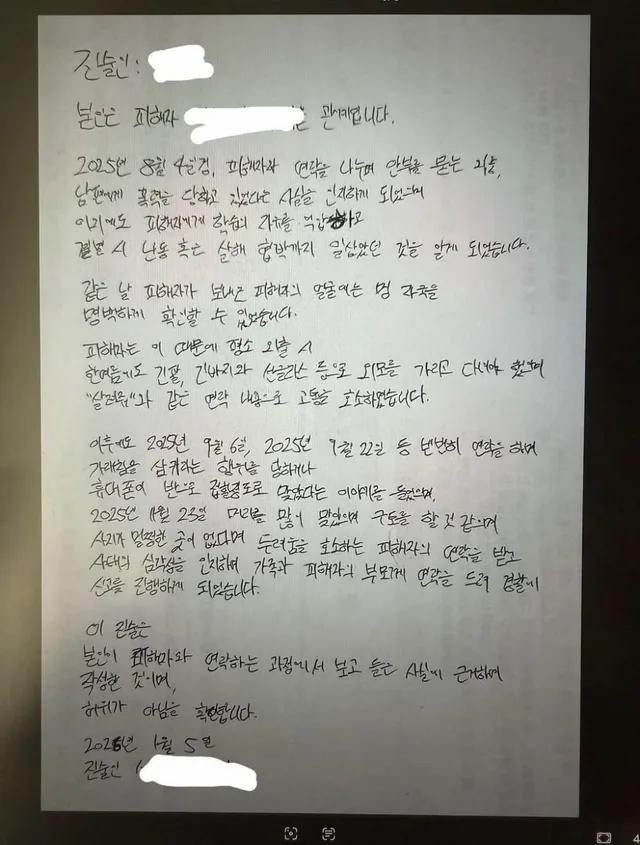 진술인:
본인은 피해자 관계입니다.
2025년 8월 4일경, 피해자와 연락을 나누며 안부를 묻는 과정,
남편에게 폭력을 당하고 있었다는 사실을 인지하게 되었으며
이외에도 피해자에게 학습의 자유를 억압하고
결별 시 난동 혹은 살해 협박까지 일삼았던 것을 알게 되었습니다.
같은 날 피해자가 보내준 피해자의 얼굴에는 멍 자국을
명백하게 확인할 수 있었습니다.
피해자는 이 때문에 평소 외출 시
한여름에도 긴팔, 긴바지와 선글라스 등으로 외모를 가리고 다녀야 했으며
"살려줘"와 같은 연락 내용으로 고통을 호소하였습니다.
이후에도 2025년 9월 6일, 2025년 9월 22일 등 빈번히 연락을 하며
가래침을 삼키라는 행위를 당하거나
휴대폰이 반으로 접힐정도로 맞았다는 이야기를 들었으며,
2025년 11월 23일 머리를 많이 맞았으며 구토를 할 것 같으며
사지가 멀쩡한 곳이 없다며 두려움을 호소하는 피해자의 연락을 받고
사태의 심각성을 인지하여 가족과 피해자의 부모께 연락을 드려 경찰에
신고를 진행하게 되었습니다.
이 진술은
본인이 피해자와 연락하는 과정에서 보고 들은 사실에 근거하여
작성한 것이며,
허위가 아님을 확인합니다.
2026년 1월 5일
진술인
4